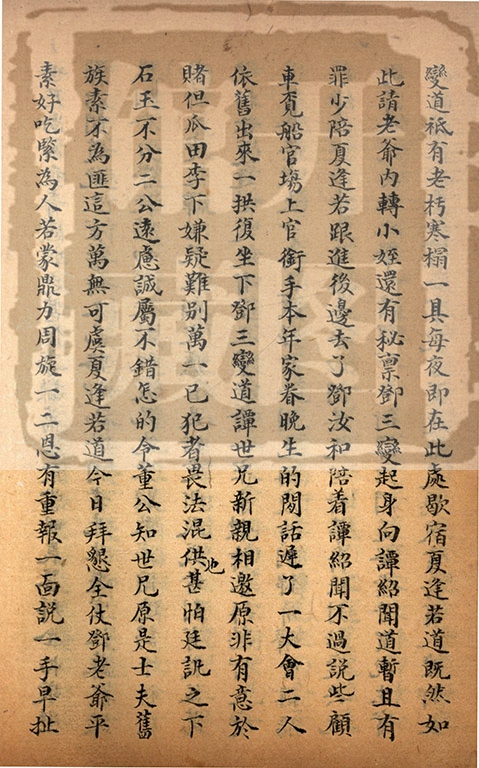 變道祗有老朽寒榻一具每夜即在此處歇宿夏逢若道既然如
此請老爺內轉小姪還有秘禀鄧三變起身向譚紹聞道暫且有
罪少陪夏逢若跟進後邊去了鄧汝和陪着譚紹聞不過說些顧
車覓船官塲上官銜手本年家眷晚生的閒話遲了一大會二人
依舊出來一拱復坐下鄧三變道譚世兄新親相邀原非有意於
賭但瓜田李下嫌疑難別萬一已犯者畏法混供甚怕廷訊之下
池
石玉不分二公遠慮誠屬不錯怎的令董公知世兄原是士夫舊
族素不為匪這方萬無可虞夏逢若道今日拜懇全仗鄧老爺平
素好吃緊為人若蒙鼎力周旋一二恩有重報一面說一手早扯